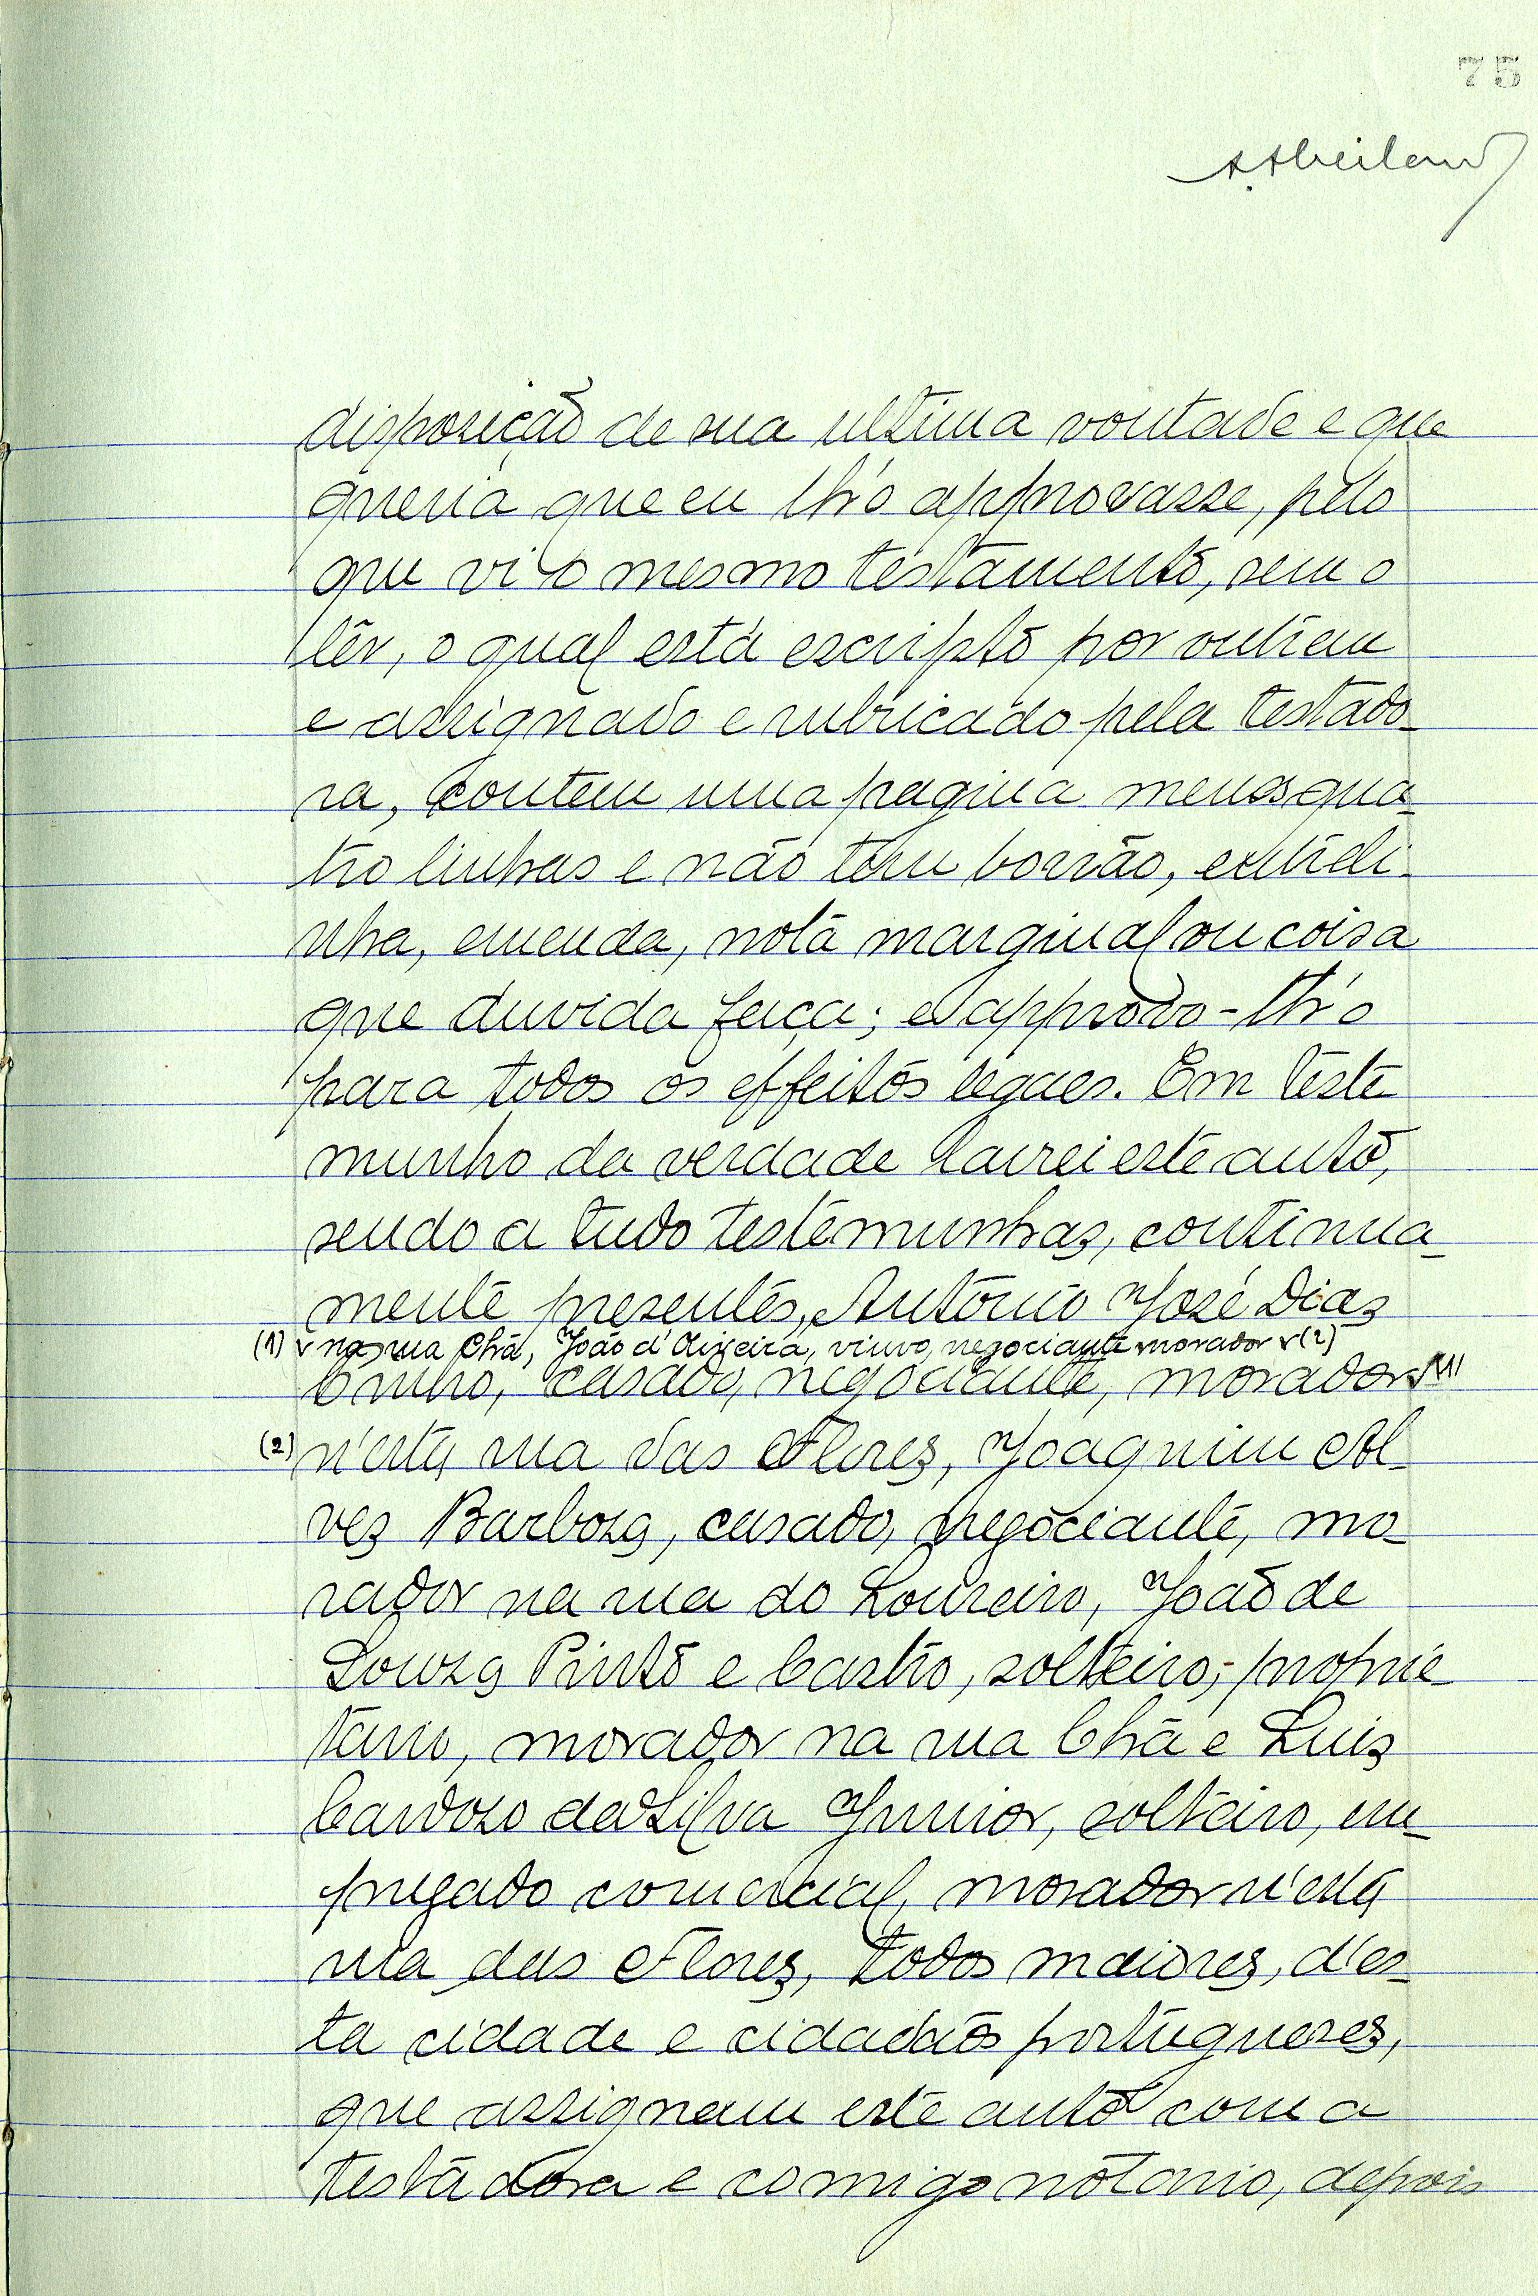 75
disposição de sua ultima vontade e que
queria que eu lh'o approvasse, pelo
que vi o mesmo testamento, sem o
lêr, o qual está escripto por outrem
e assignado e rubricado pela testado-
ra, contem uma pagina menos qua-
tro linhas e não tem borrão, entreli-
nha, emenda, nota marginal ou coisa
que duvida faça; e approvo-lh'o
para todos os effeitos legaes. Em teste-
munho da verdade lavrei este auto,
sendo a tudo testemunhas, continua-
mente presentes, Antonio José Dias
(1) v na rua Chã, João d'Oliveira, viuvo, negociante morador v (2)
Cunho, casado, negociante, morador v (1)
(2) n'esta rua das Flores, Joaquim Al-
ves Barbosa, casado, negociante, mo-
rador na rua do Loureiro, João de
Souza Pinto e Castro, solteiro, proprie-
tario, morador na rua Chã e Luis
Cardoso da Silva Junior, solteiro, em-
pregado comercial, morador n'esta
rua das Flores, todos maiores, d'es-
ta cidade e cidadãos portugueses,
que assignam este auto com a
testadora e comigo notario, depois